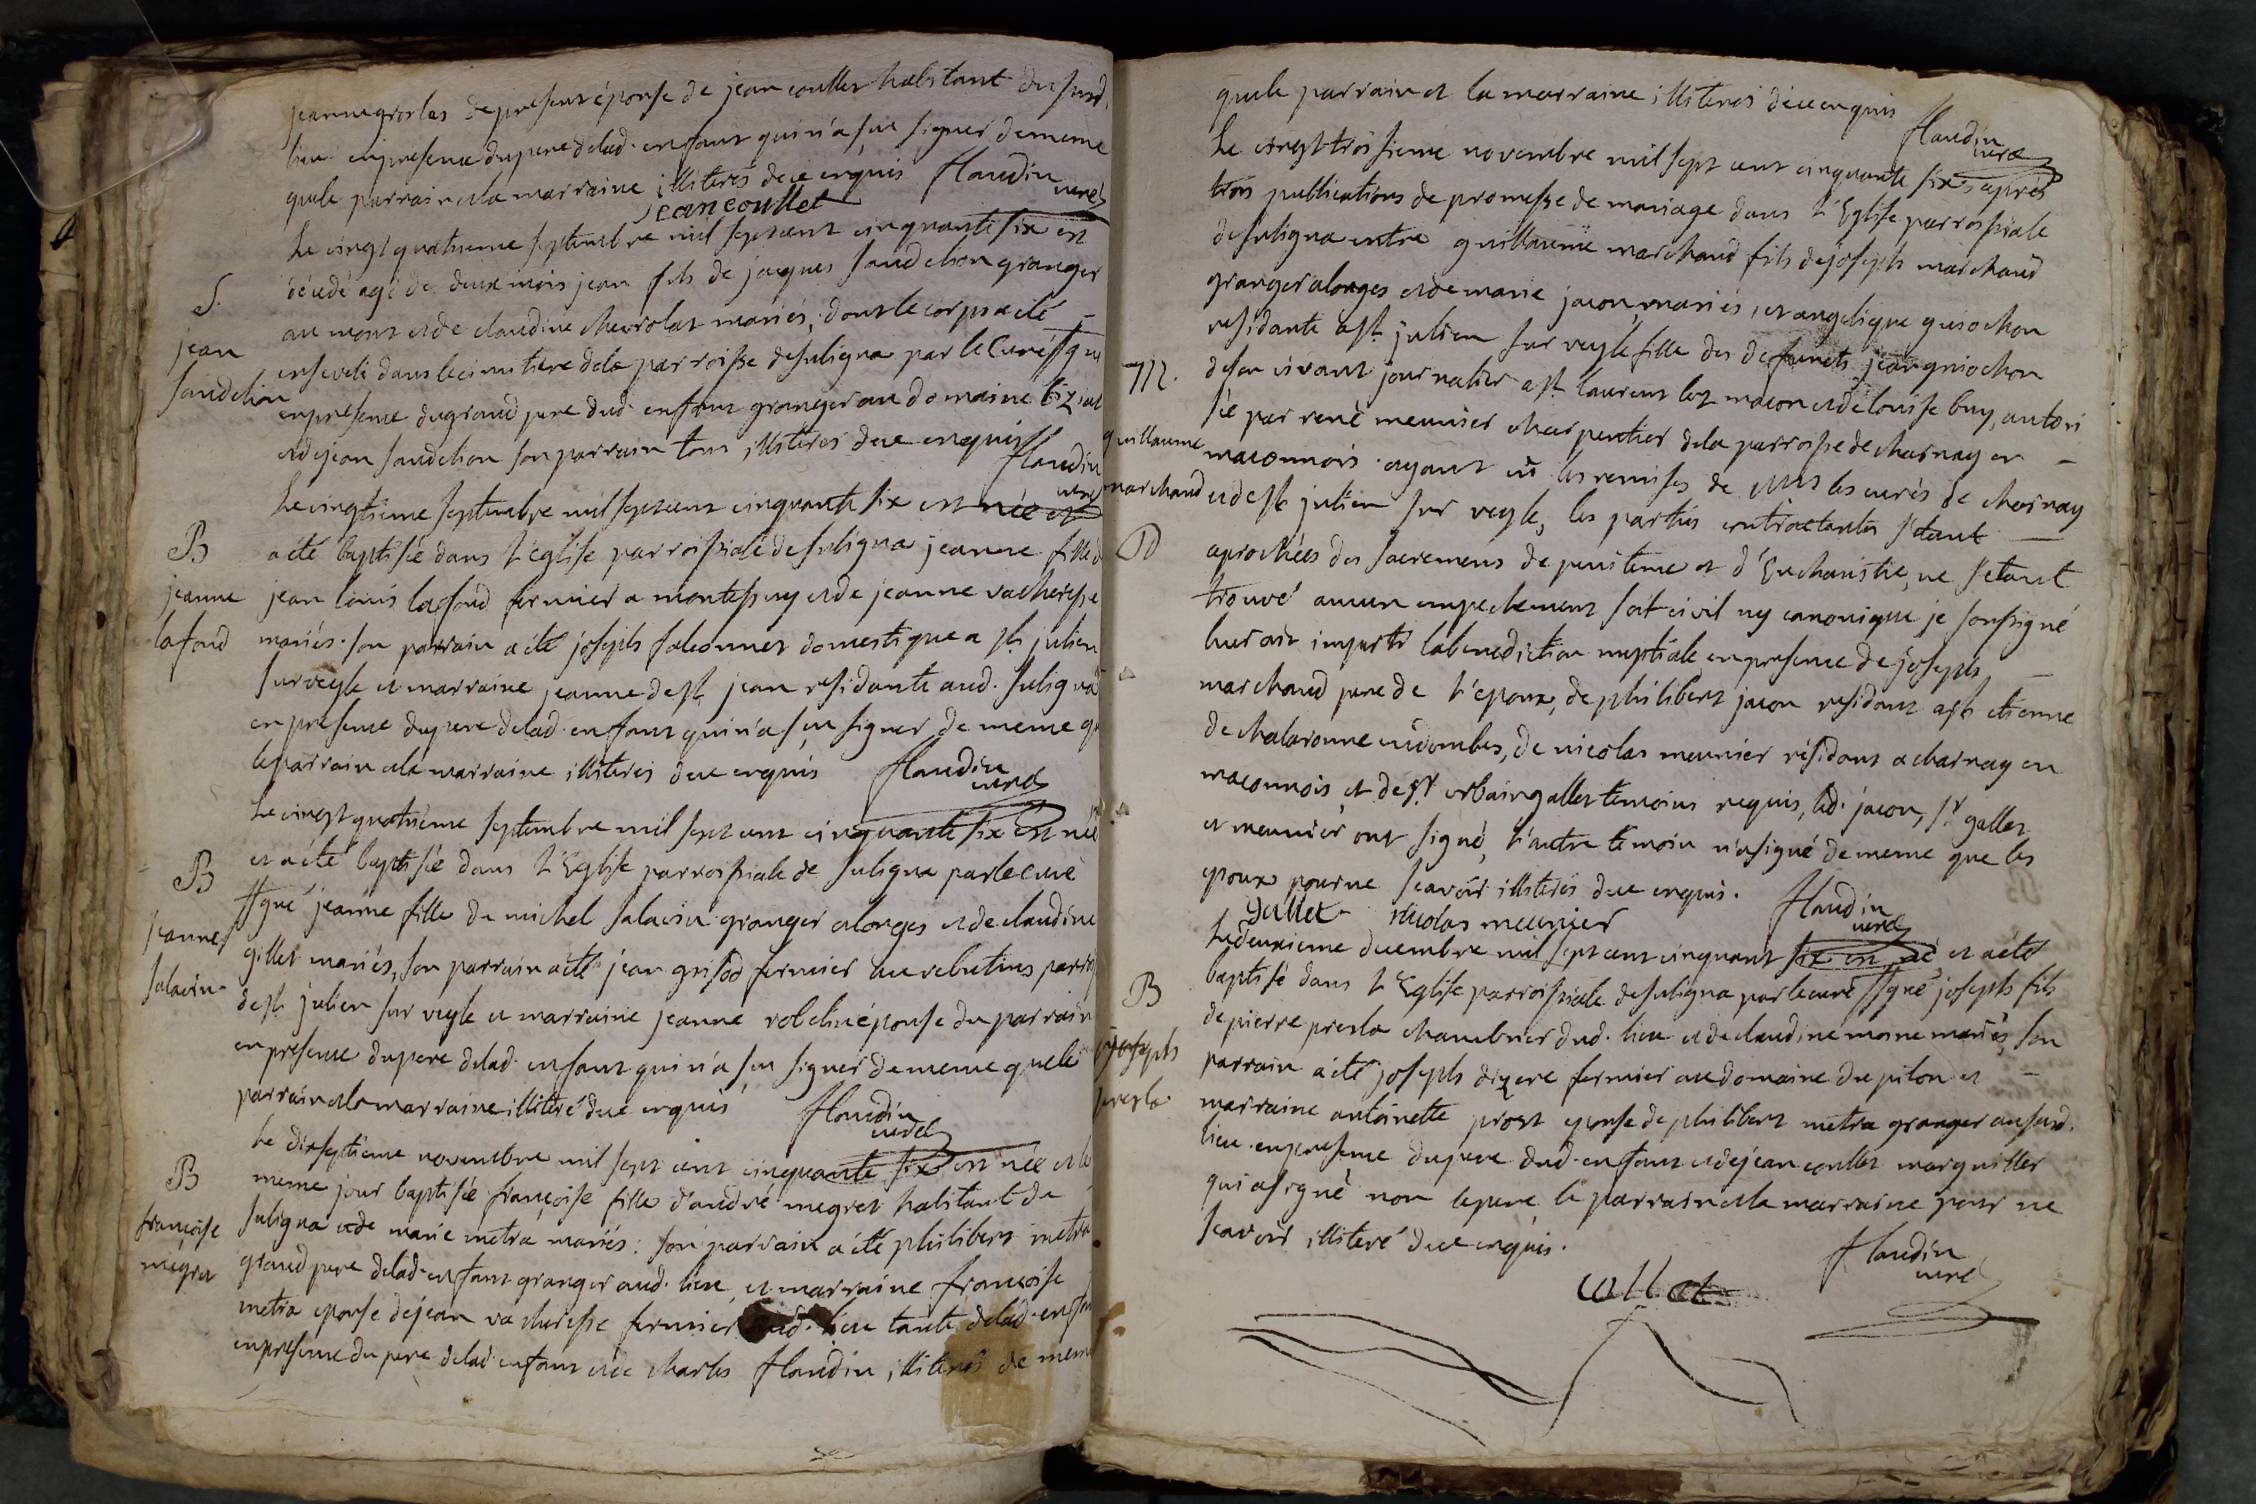 jeanne groslas de present éponse de jean coullet habitant du susd.
lieu. en presence du pere de lad. enfant qui n'a sçu signer de meme
que le parrain et la marraine illiterés de ce enquis flandin curé
jean coullet
Le vingt quatrieme septembre mil sept cent cinquante six est
décédé agé de deux mois jean fils de jacques sandelion granger
au mons et de claudine chevrolat mariés, dont le corps a eté
S.
jean
sandelion
enseveli dans le cimitiere de la parroisse de suligna par le Curé ssgné
en presence du grand pere dud. enfant granger au domaine
et de jean sandelion son parrain tous illiterés de ce enquis
flandin curé
Le vingtieme septembre mil sept cent cinquante six est née et
B
jeanne
lafond
a été baptisée dans l'église parroissiale de suligna jeanne fille de
jean louis lafond fermier a montessuy et de jeanne vacheresse
mariés. son parrain a été joseph falconnet domestique a st. julien
sur veyle et marraine jeanne de st. jean residante aud. suligna
en presence du pere de lad. enfant qui n'a sçu signer de meme que
le parrain et la marraine illiterés de ce enquis flandin curé
Le vingt quatrieme septembre mil sept cent cinquante six est née
B
jeanne
salavin
et a été baptisée dans l'Eglise parroissiale de suligna par le curé
ssgné jeanne fille de michel salavin granger a longes et de claudine
gillet mariés, son parrain a été jean grisod fermier au rebutins parroisse
de st. julien sur veyle et marraine jeanne robelin éponse du parrain
en presence du pere de lad. enfant qui n'a sçu signer de meme que le
parrain et la marraine illiteré de ce enquis flandin curé
Le dixseptieme novembre mil sept cent cinquante six est née et le
B
françoise
megret
meme jour baptisée françoise fille d'andré megret habitant de
suligna et de marie metra mariés: son parrain a été philibert metra
grand pere de lad. enfant granger aud. lieu et marraine françoise
metra eponse de jean vacheresse fermier aud. lieu tante de lad. enfant
en presence du pere de lad. enfant et de charles flandin, illiterés de meme
que le parrain et la marraine illiterés de ce enquis
flandin curé
Le vingt troisieme novembre mil sept cent cinquante six, après
trois publications de promesse de mariage dans l'Eglise parroissiale
de suligna entre guillaume marchand fils de joseph marchand
granger a longes et de marie jacon, mariés, et angelique guiochon
residante a st. julien sur veyle fille des defunts jean guiochon
M.
guillaume
marchand
de son vivant journalier a st. laurent lez macon et de louise buy, autori
sée par rené meunier charpentier de la parroisse de charnay en
maconnois. ayant vû les remises de mrs les curés de charnay
et de st. julien sur veyle, les parties contractantes s'étant
aprochées des sacremens de penitence et d'Eucharistie, ne s'etant
trouvé aucun empechement soit civil ny canonique je sousigné
leur ait imparti la benediction nuptiale en presence de joseph
marchand pere de l'époux, de philibert jacon residant a st. etienne
de chalaronne en dombes, de nicolas meunier résidant a charnay en
maconnois, et de sr. urbain gallet temoins requis, led. jacon, sr. gallet
et meunier ont signé, l'autre temoin n'a signé de meme que les
époux pour ne scavoir illiterés de ce enquis. flandin curé
Gallet nicolas meunier
Le deuxieme decembre mil sept cent cinquant six est né et a été
B
joseph
presla
baptisé dans l'Eglise parroissiale de suligna par le curé ssgné joseph fils
de pierre presla chambrier dud. lieu et de claudine moine mariés, son
parrain a été joseph fermier au domaine du pilon et
marraine antoinette prost eponse de philibert metra granger au susd.
lieu. en presence du pere dud. enfant et de jean coullet marguiller
qui a signé non le pere le parrain et la marraine pour ne
scavoir illiteré de ce enquis.
flandin curé